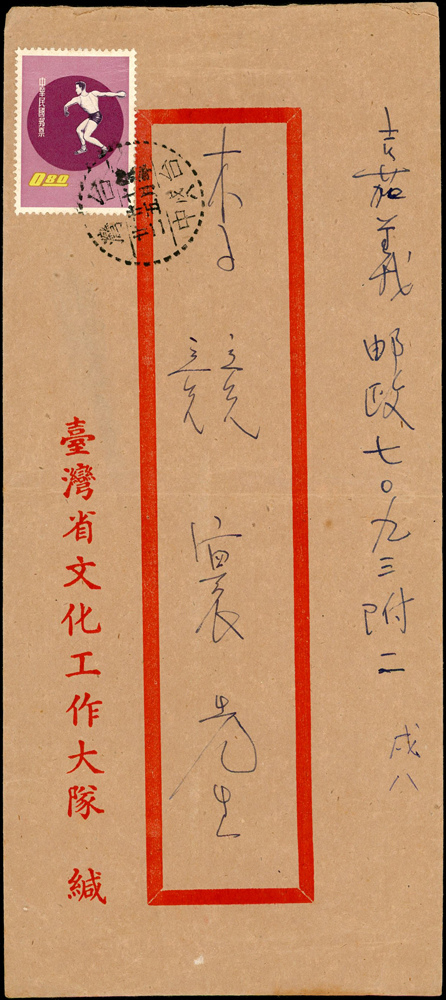 嘉義郵政七〇九三附二
戍八
李競寰先生
臺灣省文化工作大隊 緘
中華民國郵票
0.80
台中
台灣